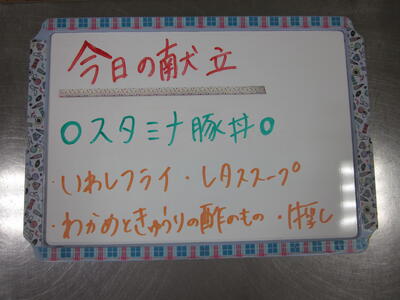 今日の献立
○スタミナ豚丼○
・いわしフライ・レタススープ
・わかめときゅうりの酢のもの・